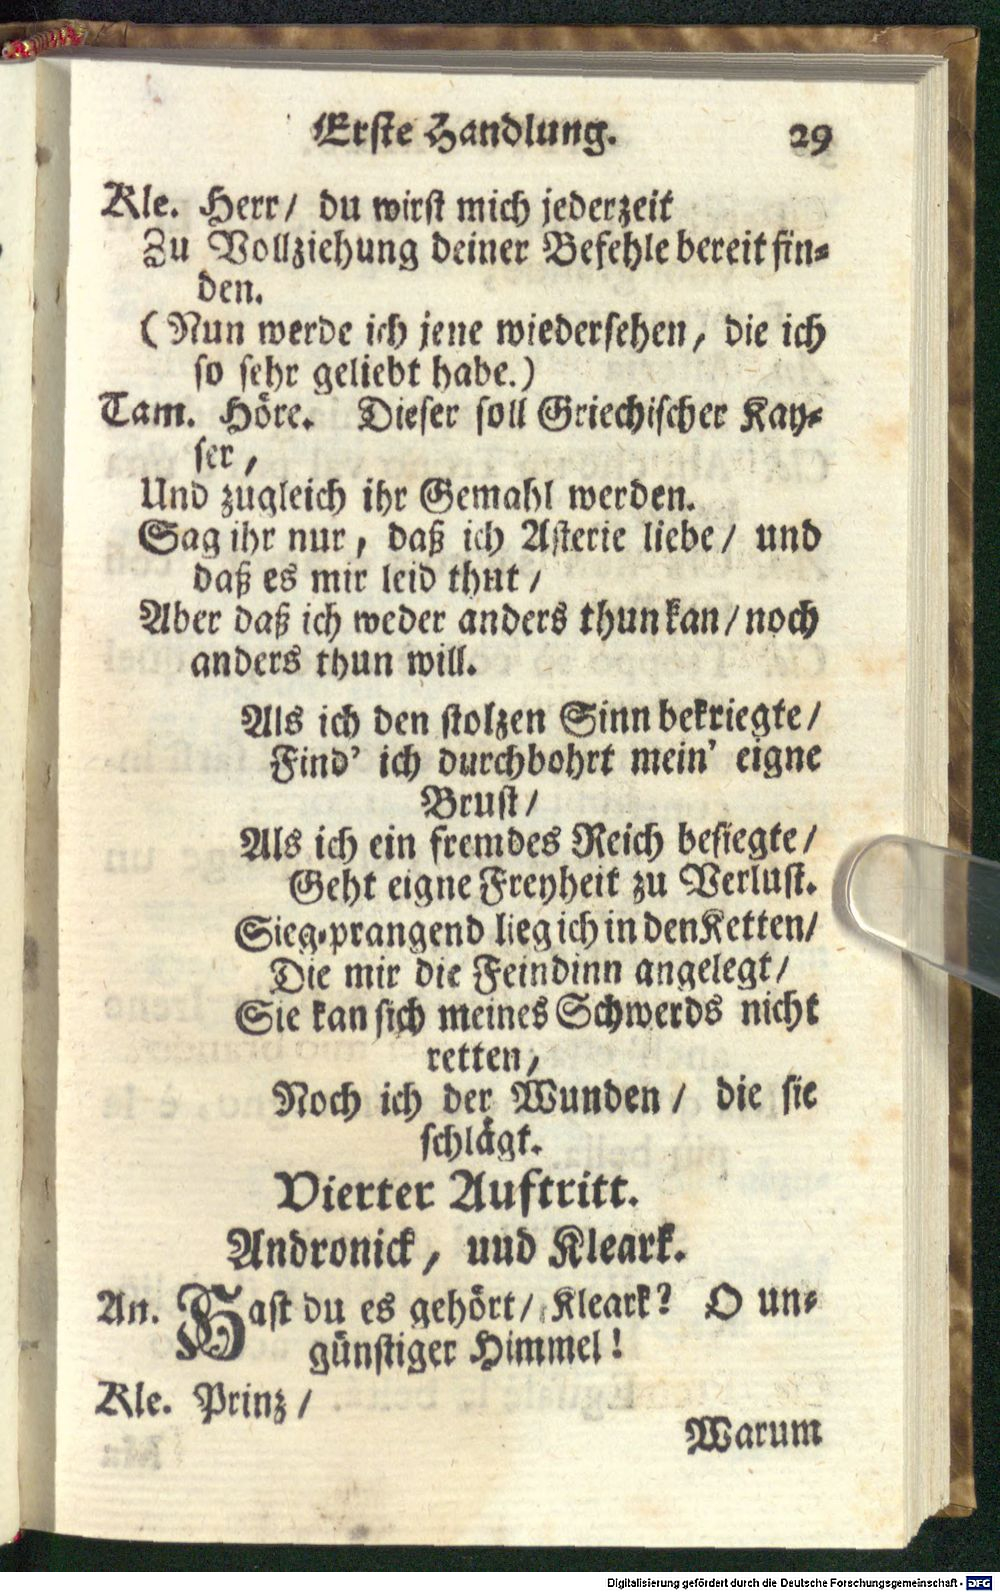 Erste Handlung. 29
Kle. Herr/ du wirst mich jederzeit
Zu Vollziehung deiner Befehle bereit fin-
den.
(Nun werde ich jene wiedersehen, die ich
so sehr geliebt habe.)
Tam. Höre. Dieser soll Griechischer Kay-
ser,
Und zugleich ihr Gemahl werden.
Sag ihr nur, daß ich Asterie liebe/ und
daß es mir leid thut/
Aber daß ich weder anders thun kan/ noch
anders thun will.
Als ich den stolzen Sinn bekriegte/
Find' ich durchbohrt mein' eigne
Brust/
Als ich ein fremdes Reich besiegte/
Geht eigne Freyheit zu Verlust.
Sieg-prangend lieg ich in den Ketten/
Die mir die Feindinn angelegt/
Sie kan sich meines Schwerds nicht
retten,
Noch ich der Wunden/ die sie
schlägt.
Vierter Auftritt.
Andronick, uud Kleark.
An. Hast du es gehört/ Kleark? O un-
günstiger Himmel!
Kle. Prinz/
Warum
Digitalisierung gefördert durch die Deutsche Forschungsgemeinschaft - DFG